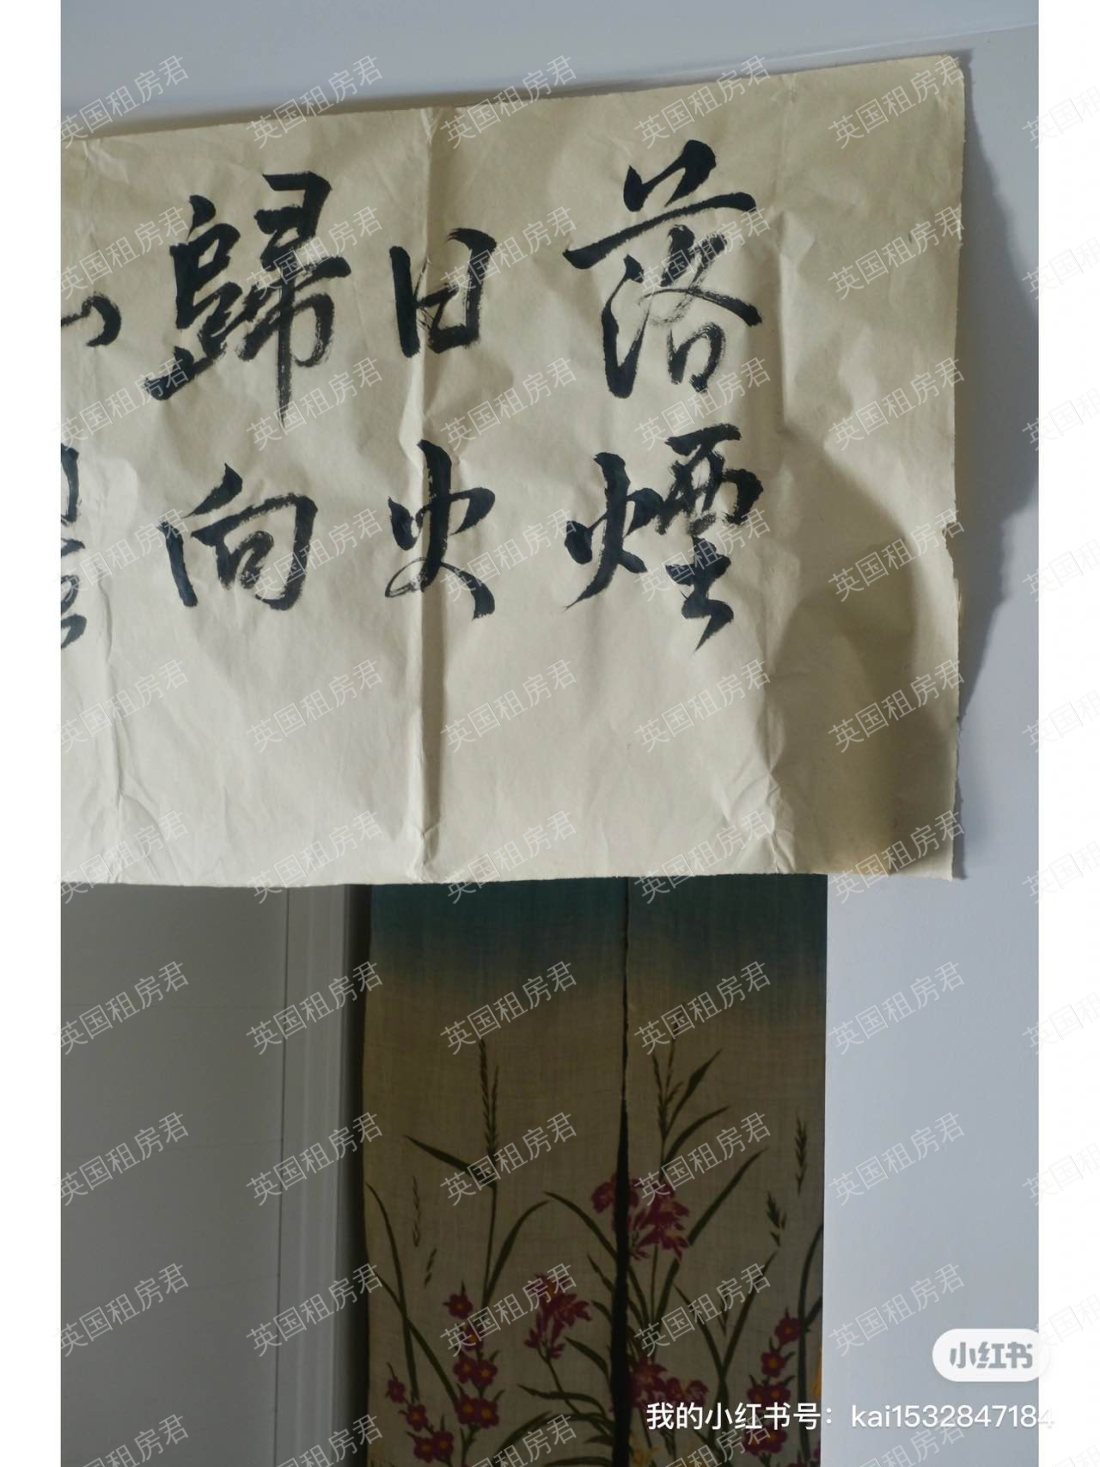 落日歸
煙火向
英国租房君
小红书
我的小红书号：kai1532847184